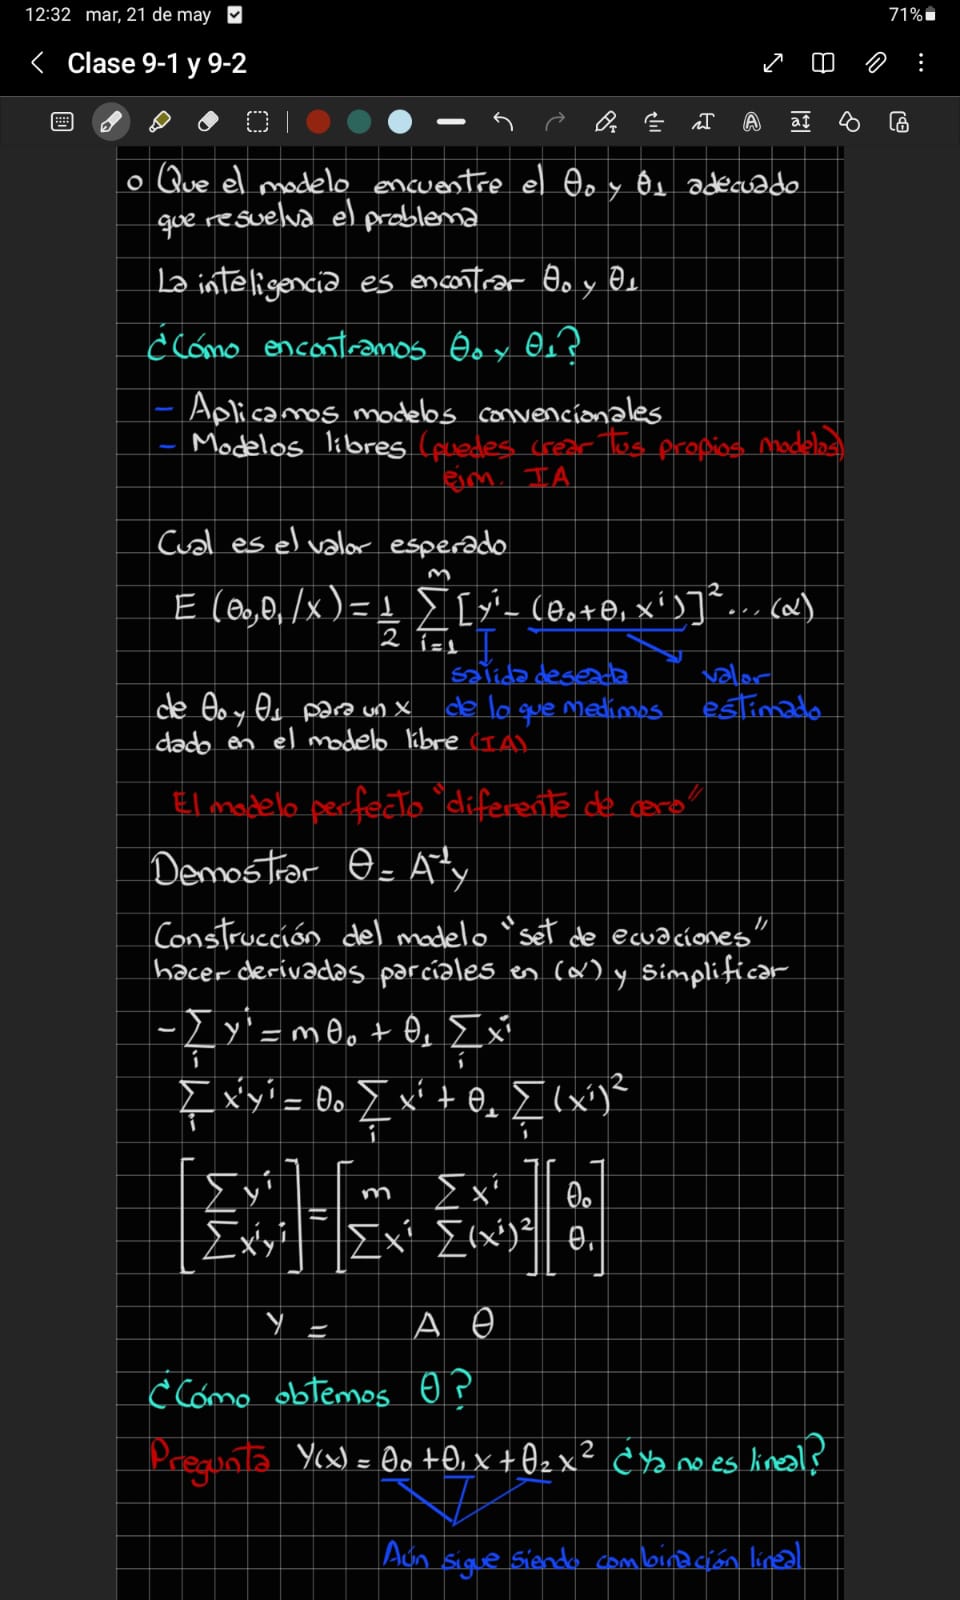 12:32 mar, 21 de may 71%
Clase 9-1 y 9-2
o Que el modelo encuentre el θ₀ y θ₁ adecuado
que resuelva el problema
La inteligencia es encontrar θ₀ y θ₁
¿Cómo encontramos θ₀ y θ₁?
- Aplicamos modelos convencionales
- Modelos libres (puedes crear tus propios modelos)
ejm. IA
Cual es el valor esperado
E (θ₀,θ₁/x) = 1/2 ∑_{i=1}^{m} [yⁱ - (θ₀+θ₁xⁱ)]² ... (α)
salida deseada valor
de θ₀ y θ₁ para un x de lo que medimos estimado
dado en el modelo libre (IA)
El modelo perfecto "diferente de cero"
Demostrar θ = A⁻¹y
Construcción del modelo "set de ecuaciones"
hacer derivadas parciales en (α) y simplificar
- ∑_i yⁱ = mθ₀ + θ₁ ∑_i xⁱ
∑_i xⁱyⁱ = θ₀ ∑_i xⁱ + θ₁ ∑_i (xⁱ)²
[∑yⁱ] = [m ∑xⁱ] [θ₀]
[∑xⁱyⁱ] [∑xⁱ ∑(xⁱ)²] [θ₁]
Y = A θ
¿Cómo obtemos θ?
Pregunta Y(x) = θ₀ + θ₁x + θ₂x² ¿Ya no es lineal?
Aún sigue siendo combinación lineal